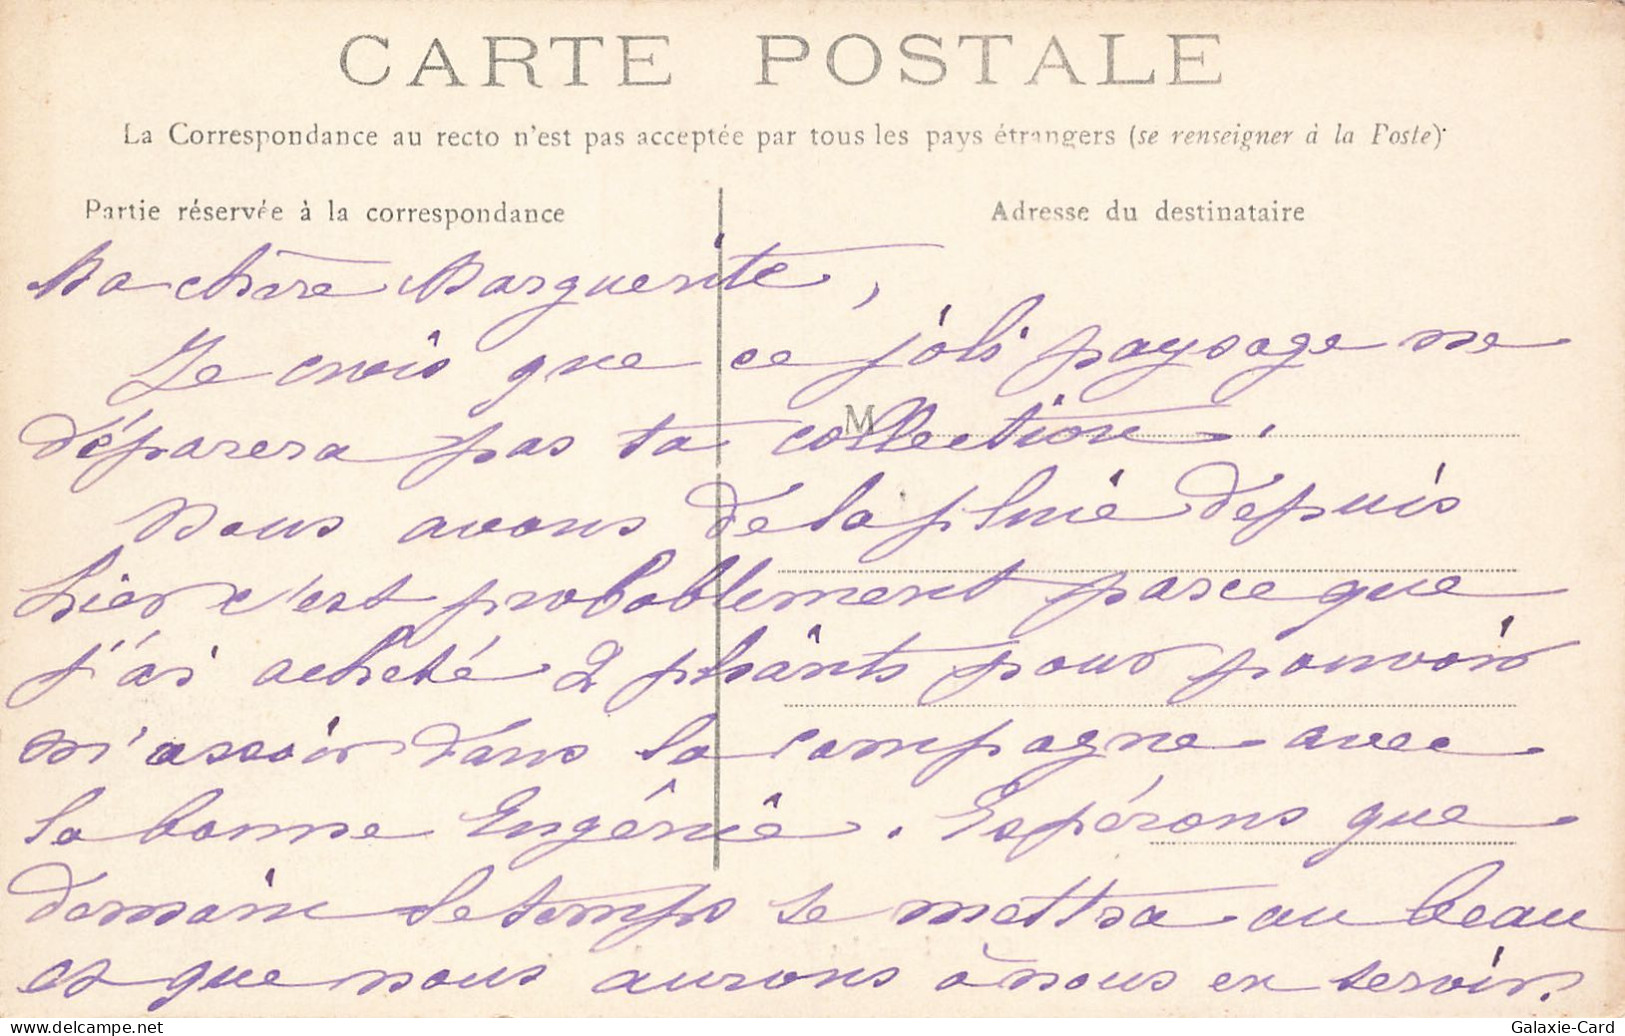 CARTE POSTALE
La Correspondance au recto n'est pas acceptée par tous les pays étrangers (se renseigner à la Poste)
Partie réservée à la correspondance
Adresse du destinataire
M
Ma chère Marguerite,
Je crois que ce joli paysage ne
déparera pas ta collection.
Nous avons de la pluie depuis
hier c'est probablement parce que
j'ai acheté 2 pliants pour pouvoir
m'asseoir dans la campagne avec
la bonne Eugénie. Espérons que
demain le temps se mettra au beau
et que nous aurons à nous en servir.
www.delcampe.net
Galaxie-Card